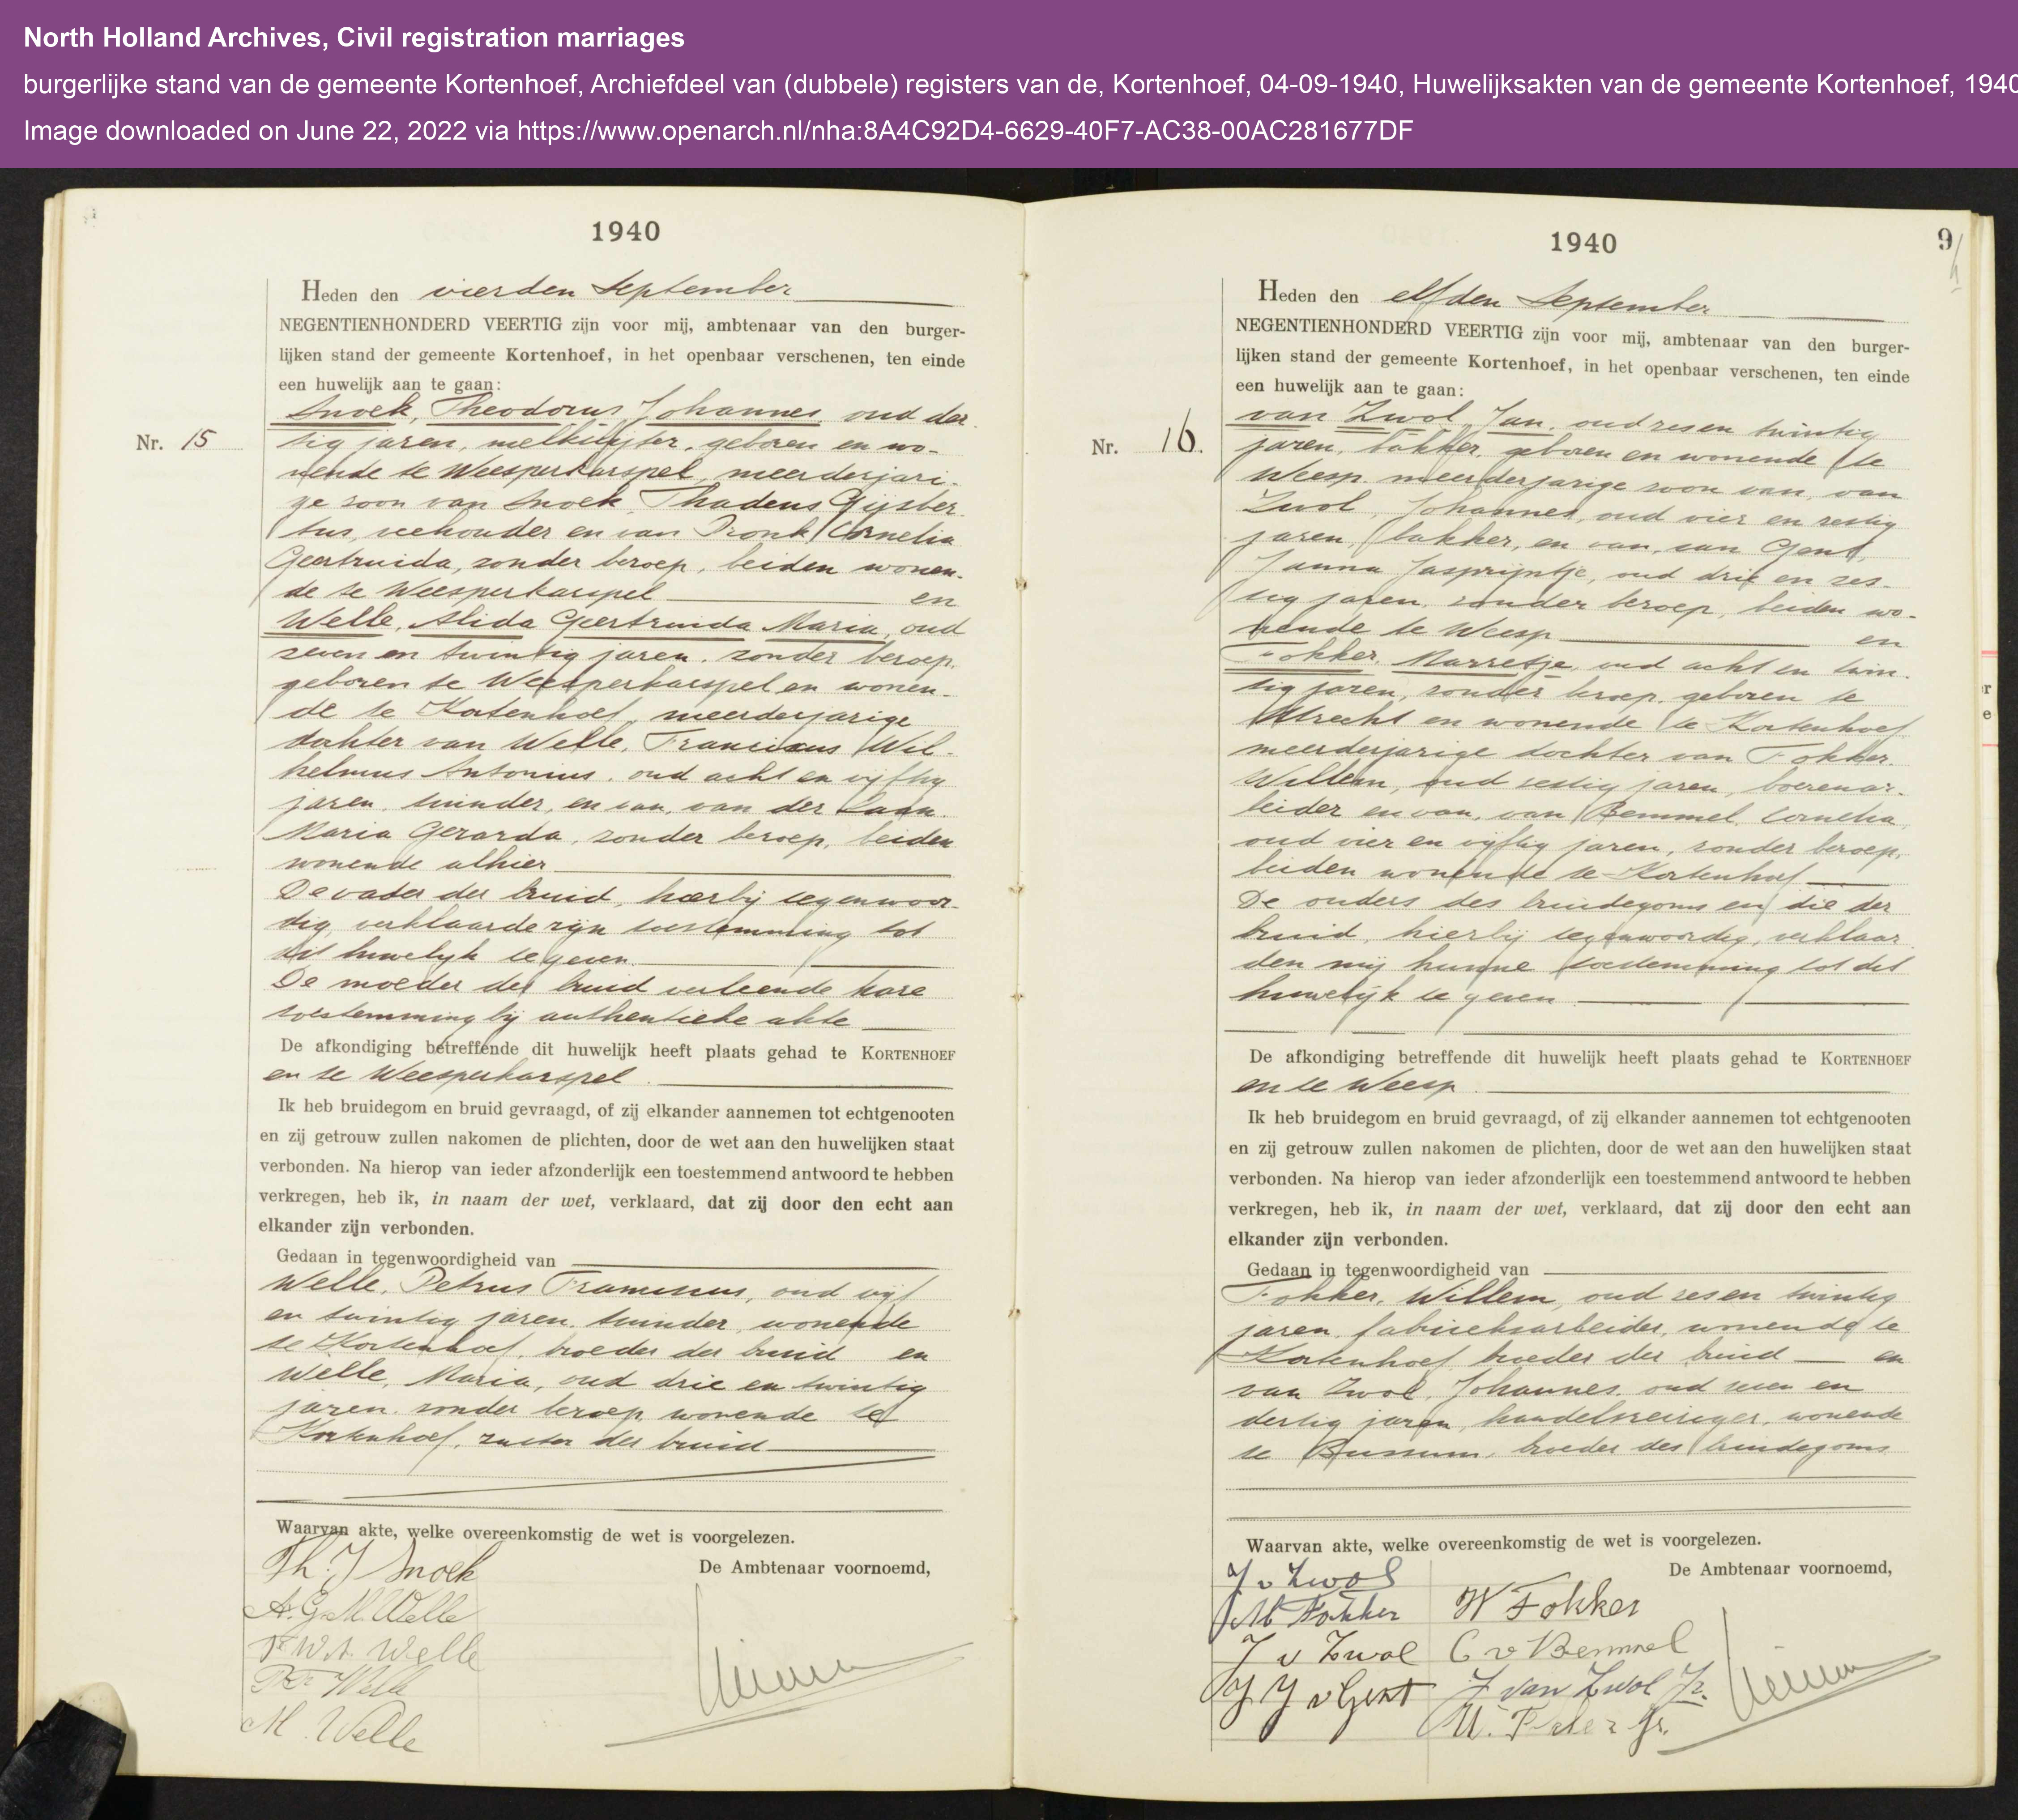 North Holland Archives, Civil registration marriages
burgerlijke stand van de gemeente Kortenhoef, Archiefdeel van (dubbele) registers van de, Kortenhoef, 04-09-1940, Huwelijksakten van de gemeente Kortenhoef, 1940
Image downloaded on June 22, 2022 via https://www.openarch.nl/nha:8A4C92D4-6629-40F7-AC38-00AC281677DF
1940
Heden den vierden September
NEGENTIENHONDERD VEERTIG zijn voor mij, ambtenaar van den burger-
lijken stand der gemeente Kortenhoef, in het openbaar verschenen, ten einde
een huwelijk aan te gaan:
Snoek, Theodorus Johannes, oud der
Nr. 15
tig jaren, melkslijter, geboren en wo-
nende te Weesperkarspel, meerderjari-
ge zoon van Snoek, Thadeus Gijsber
tus, veehouder en van Pronk, Cornelia
Geertruida, zonder beroep, beiden wonen-
de te Weesperkarspel en
Welle, Alida Geertruida Maria, oud
zeven en twintig jaren, zonder beroep,
geboren te Weesperkarspel en wonen-
de te Kortenhoef, meerderjarige
dochter van Welle, Franciscus Wil-
helmus Antonius, oud acht en vijftig
jaren, tuinder, en van, van der Laan,
Maria Gerarda, zonder beroep, beiden
wonende alhier
De vader der bruid, hierbij tegenwoor-
dig verklaarde zijn toestemming tot
dit huwelijk te geven.
De moeder der bruid verleende hare
toestemming bij authentieke akte
De afkondiging betreffende dit huwelijk heeft plaats gehad te KORTENHOEF
en te Weesperkarspel.
Ik heb bruidegom en bruid gevraagd, of zij elkander aannemen tot echtgenooten
en zij getrouw zullen nakomen de plichten, door de wet aan den huwelijken staat
verbonden. Na hierop van ieder afzonderlijk een toestemmend antwoord te hebben
verkregen, heb ik, in naam der wet, verklaard, dat zij door den echt aan
elkander zijn verbonden.
Gedaan in tegenwoordigheid van
Welle, Petrus Franciscus, oud vijf
en twintig jaren, tuinder, wonende
te Kortenhoef, broeder der bruid en
Welle, Maria, oud drie en twintig
jaren, zonder beroep wonende te
Kortenhoef, zuster der bruid
Waarvan akte, welke overeenkomstig de wet is voorgelezen.
De Ambtenaar voornoemd,
Th. J Snoek
A. G. M. Welle
F W A Welle
P. Fr Welle
M. Welle
1940
9
Heden den elfden September
NEGENTIENHONDERD VEERTIG zijn voor mij, ambtenaar van den burger-
lijken stand der gemeente Kortenhoef, in het openbaar verschenen, ten einde
een huwelijk aan te gaan:
van Zwol, Jan, oud zes en twintig
Nr. 16.
jaren, bakker, geboren en wonende te
Weesp, meerderjarige zoon van, van
Zwol, Johannes, oud vier en zestig
jaren, bakker, en van, van Gent,
Janna Jasprijntje, oud drie en zes-
tig jaren, zonder beroep, beiden wo-
nende te Weesp en
Fokker, Marretje, oud acht en twin-
tig jaren, zonder beroep, geboren te
Utrecht en wonende te Kortenhoef
meerderjarige dochter van Fokker,
Willem, oud zestig jaren, boerenar-
beider en van, van Bemmel, Cornelia,
oud vier en vijftig jaren, zonder beroep,
beiden wonende te Kortenhoef
De ouders des bruidegoms en die der
bruid, hierbij tegenwoordig, verklaar
den mij hunne toestemming tot dit
huwelijk te geven
De afkondiging betreffende dit huwelijk heeft plaats gehad te KORTENHOEF
en te Weesp.
Ik heb bruidegom en bruid gevraagd, of zij elkander aannemen tot echtgenooten
en zij getrouw zullen nakomen de plichten, door de wet aan den huwelijken staat
verbonden. Na hierop van ieder afzonderlijk een toestemmend antwoord te hebben
verkregen, heb ik, in naam der wet, verklaard, dat zij door den echt aan
elkander zijn verbonden.
Gedaan in tegenwoordigheid van
Fokker, Willem, oud zes en twintig
jaren, fabrieksarbeider, wonende te
Kortenhoef, broeder der bruid en
van Zwol, Johannes, oud een en
dertig jaren, handelsreiziger, wonende
te Bussum, broeder des bruidegoms
Waarvan akte, welke overeenkomstig de wet is voorgelezen.
De Ambtenaar voornoemd,
J v Zwol
M Fokker
W Fokker
J v Zwol
C v Bemmel
J J v Gent
J van Zwol Jr.